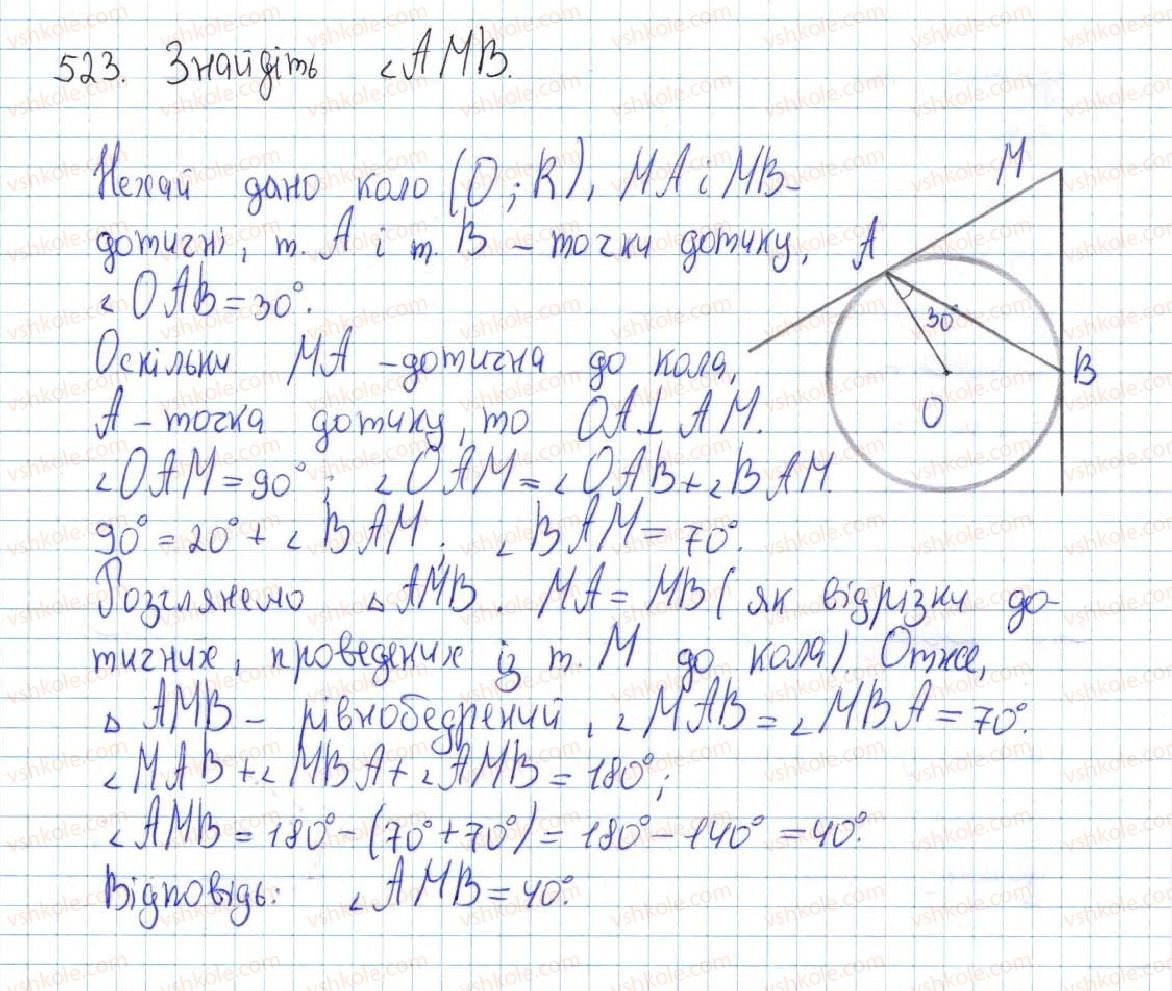 523. Знайдіть ∠AMB.
Нехай дано коло (O; R), MA і MB-
дотичні, т. A і т. B - точки дотику,
∠OAB = 30°.
Оскільки MA - дотична до кола,
A - точка дотику, то OA⊥AM.
∠OAM = 90°; ∠OAM = ∠OAB + ∠BAM.
90° = 20° + ∠BAM; ∠BAM = 70°.
Розглянемо △AMB. MA = MB (як відрізки до-
тичних, проведених із т. M до кола). Отже,
△AMB - рівнобедрений, ∠MAB = ∠MBA = 70°.
∠MAB + ∠MBA + ∠AMB = 180°;
∠AMB = 180° - (70° + 70°) = 180° - 140° = 40°.
Відповідь: ∠AMB = 40°.
M
A
30°
B
O
vshkole.com